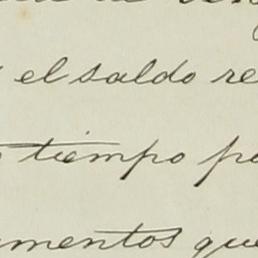 el saldo re
tiempo po
mentos que